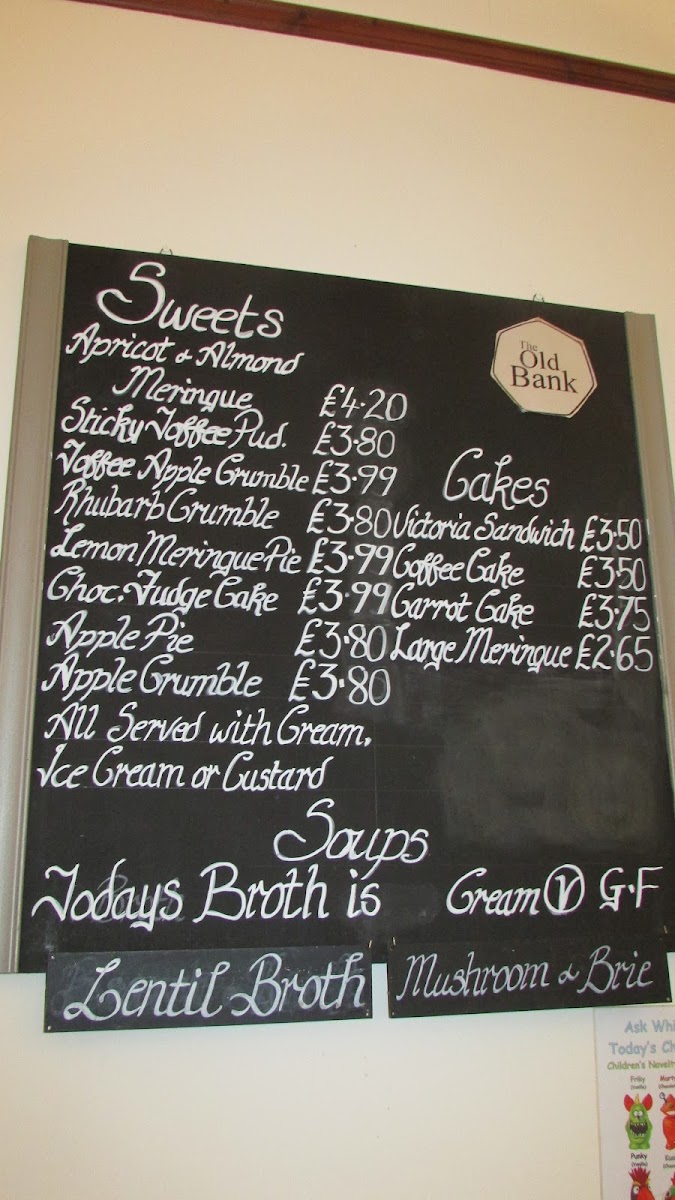 Sweets
Apricot & Almond
Meringue £4.20
Sticky Toffee Pud. £3.80
Toffee Apple Crumble £3.99
Rhubarb Crumble £3.80
Lemon Meringue Pie £3.99
Choc. Fudge Cake £3.99
Apple Pie £3.80
Apple Crumble £3.80
All Served with Cream,
Ice Cream or Custard
The
Old
Bank
Cakes
Victoria Sandwich £3.50
Coffee Cake £3.50
Carrot Cake £3.75
Large Meringue £2.65
Soups
Todays Broth is
Cream V G.F
Lentil Broth
Mushroom & Brie
Ask Whi
Today's Ch
Children's Novelt
Punky